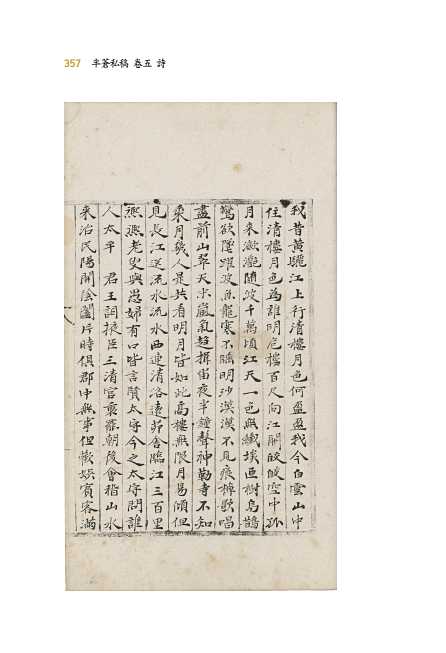 357 半蒼私稿 卷五 詩
我昔黃驪江上行清樓月色何盈盈我今白雲山中
住清樓月色為誰明危樓百尺向江開皎皎空中孤
月來瀲灩隨波千萬頃江天一色無纖埃匝樹烏鵲
驚欲墮躍波魚龍寒不瞞明沙漠漠不見痕棹歌唱
盡前山翠天末嵐氣超揖宙夜半鍾聲神勒寺不知
乘月幾人是共看明月皆如此高樓無限月易傾但
見長江送流水流水西連清洛遠茆舍臨江三百里
熙熙老叟與愚婦有口皆言贊太守今之太守問誰
人太平 君王詞掖臣三清官裏罷朝後會稽山水
來治民陽開陰闔片時俱郡中無事但歡娛賓客滿